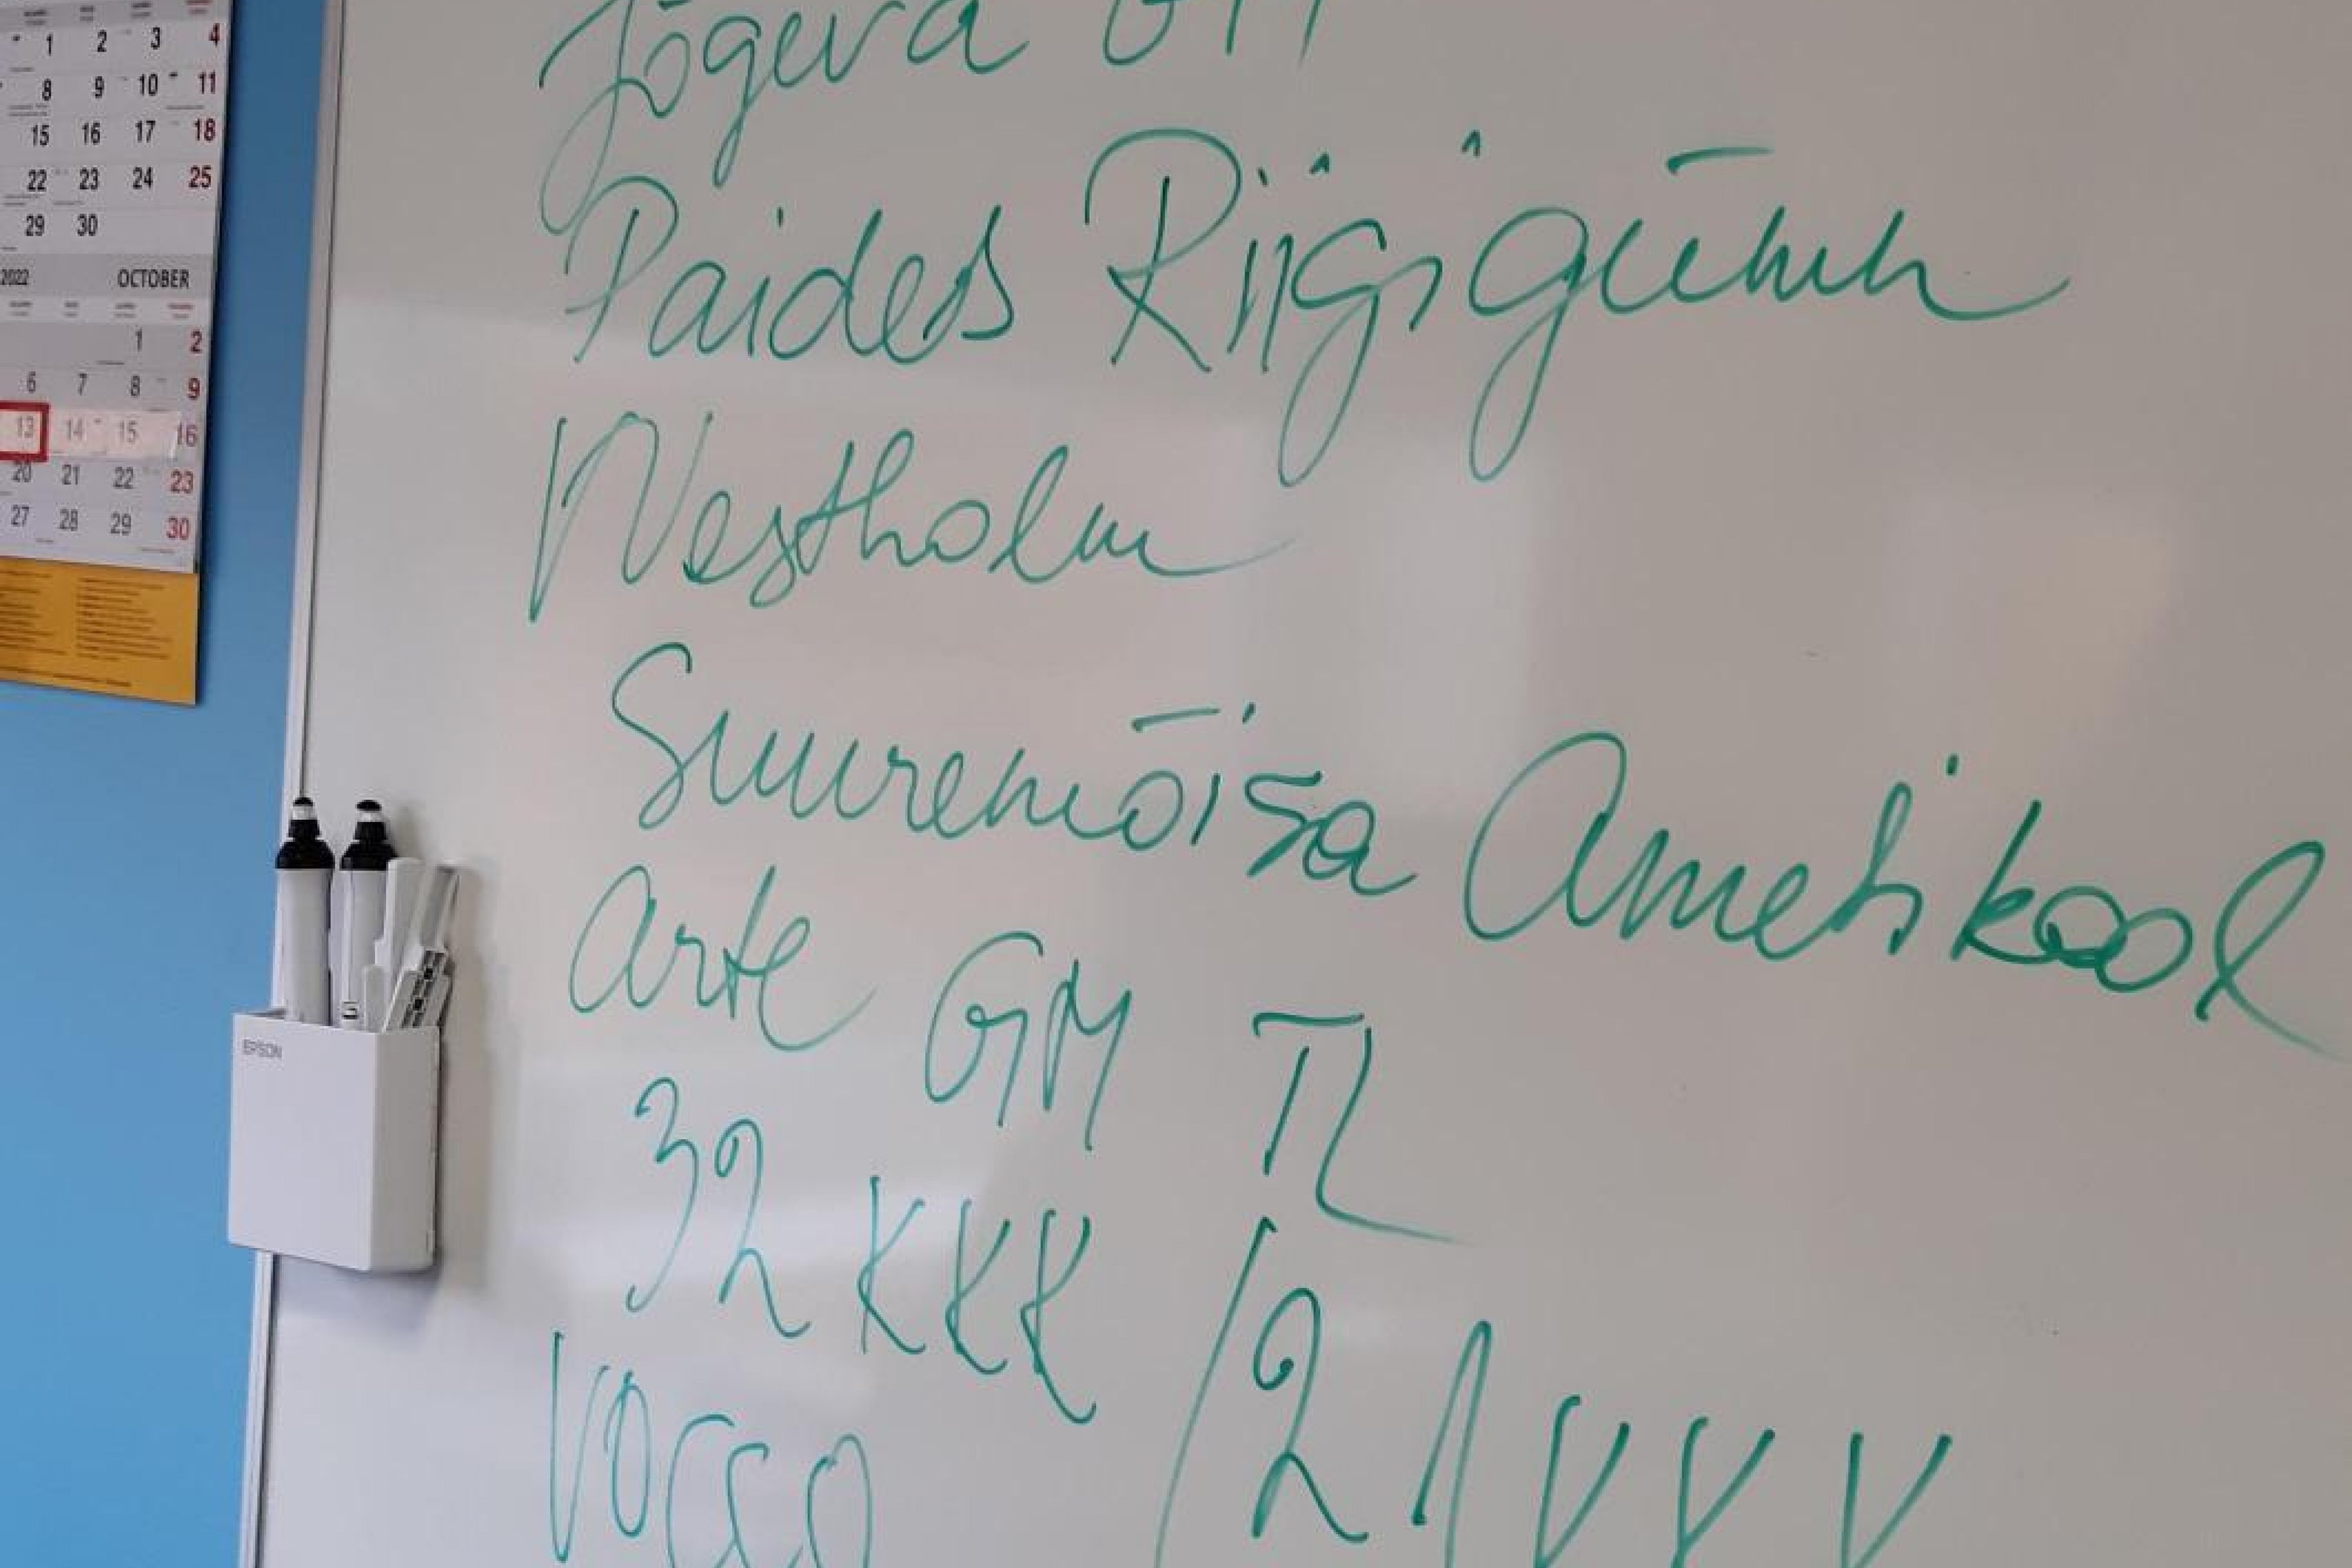 1 2 3 4
8 9 10 11
15 16 17 18
22 23 24 25
29 30
2022 OCTOBER
1 2
6 7 8 9
13 14 15 16
20 21 22 23
27 28 29 30
EPSON
Jõgeva
Paides Riigigümn
Westholm
Suuremõisa Ametikool
Arte GM TL
32 KKK
/21